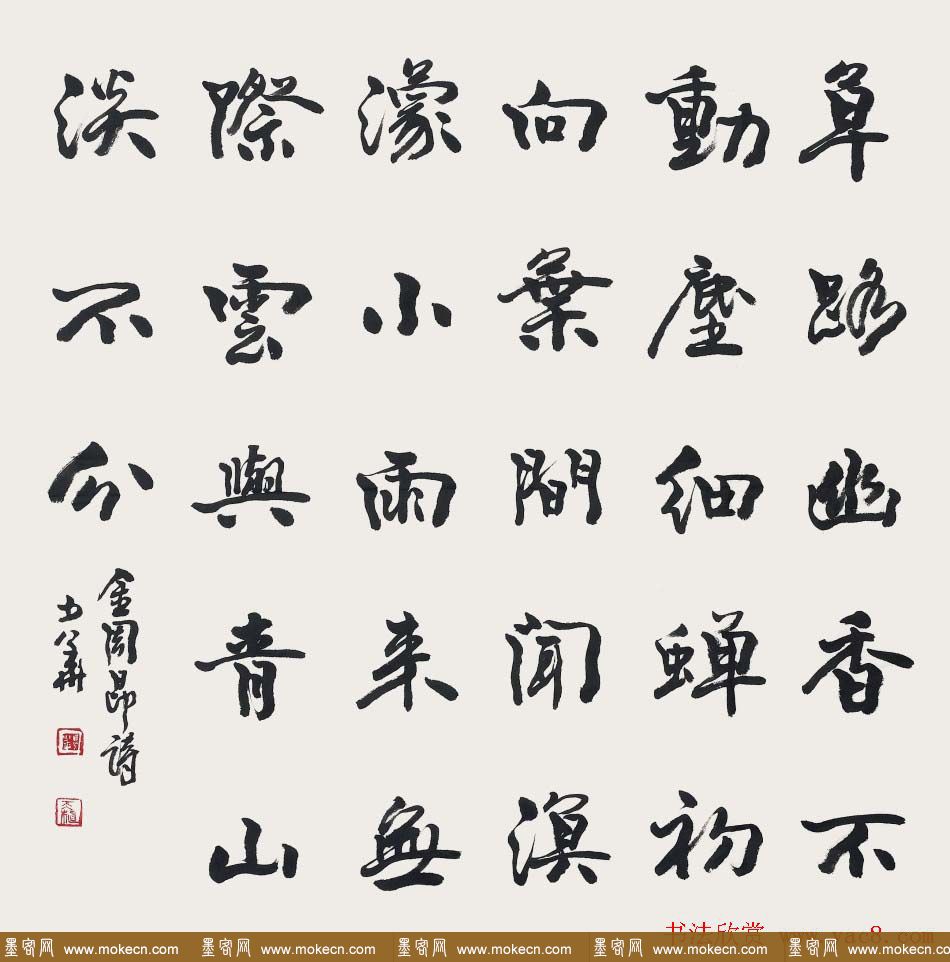 草路幽香不
動塵細蝉初
向葉間聞溟
濛小雨来無
際雲與青山
淡不分
金周昂詩
书法欣赏 www.yac8.com
墨客网 www.mokecn.com 墨客网 www.mokecn.com 墨客网 www.mokecn.com 墨客网 www.mokecn.com 墨客网 www.mokecn.com